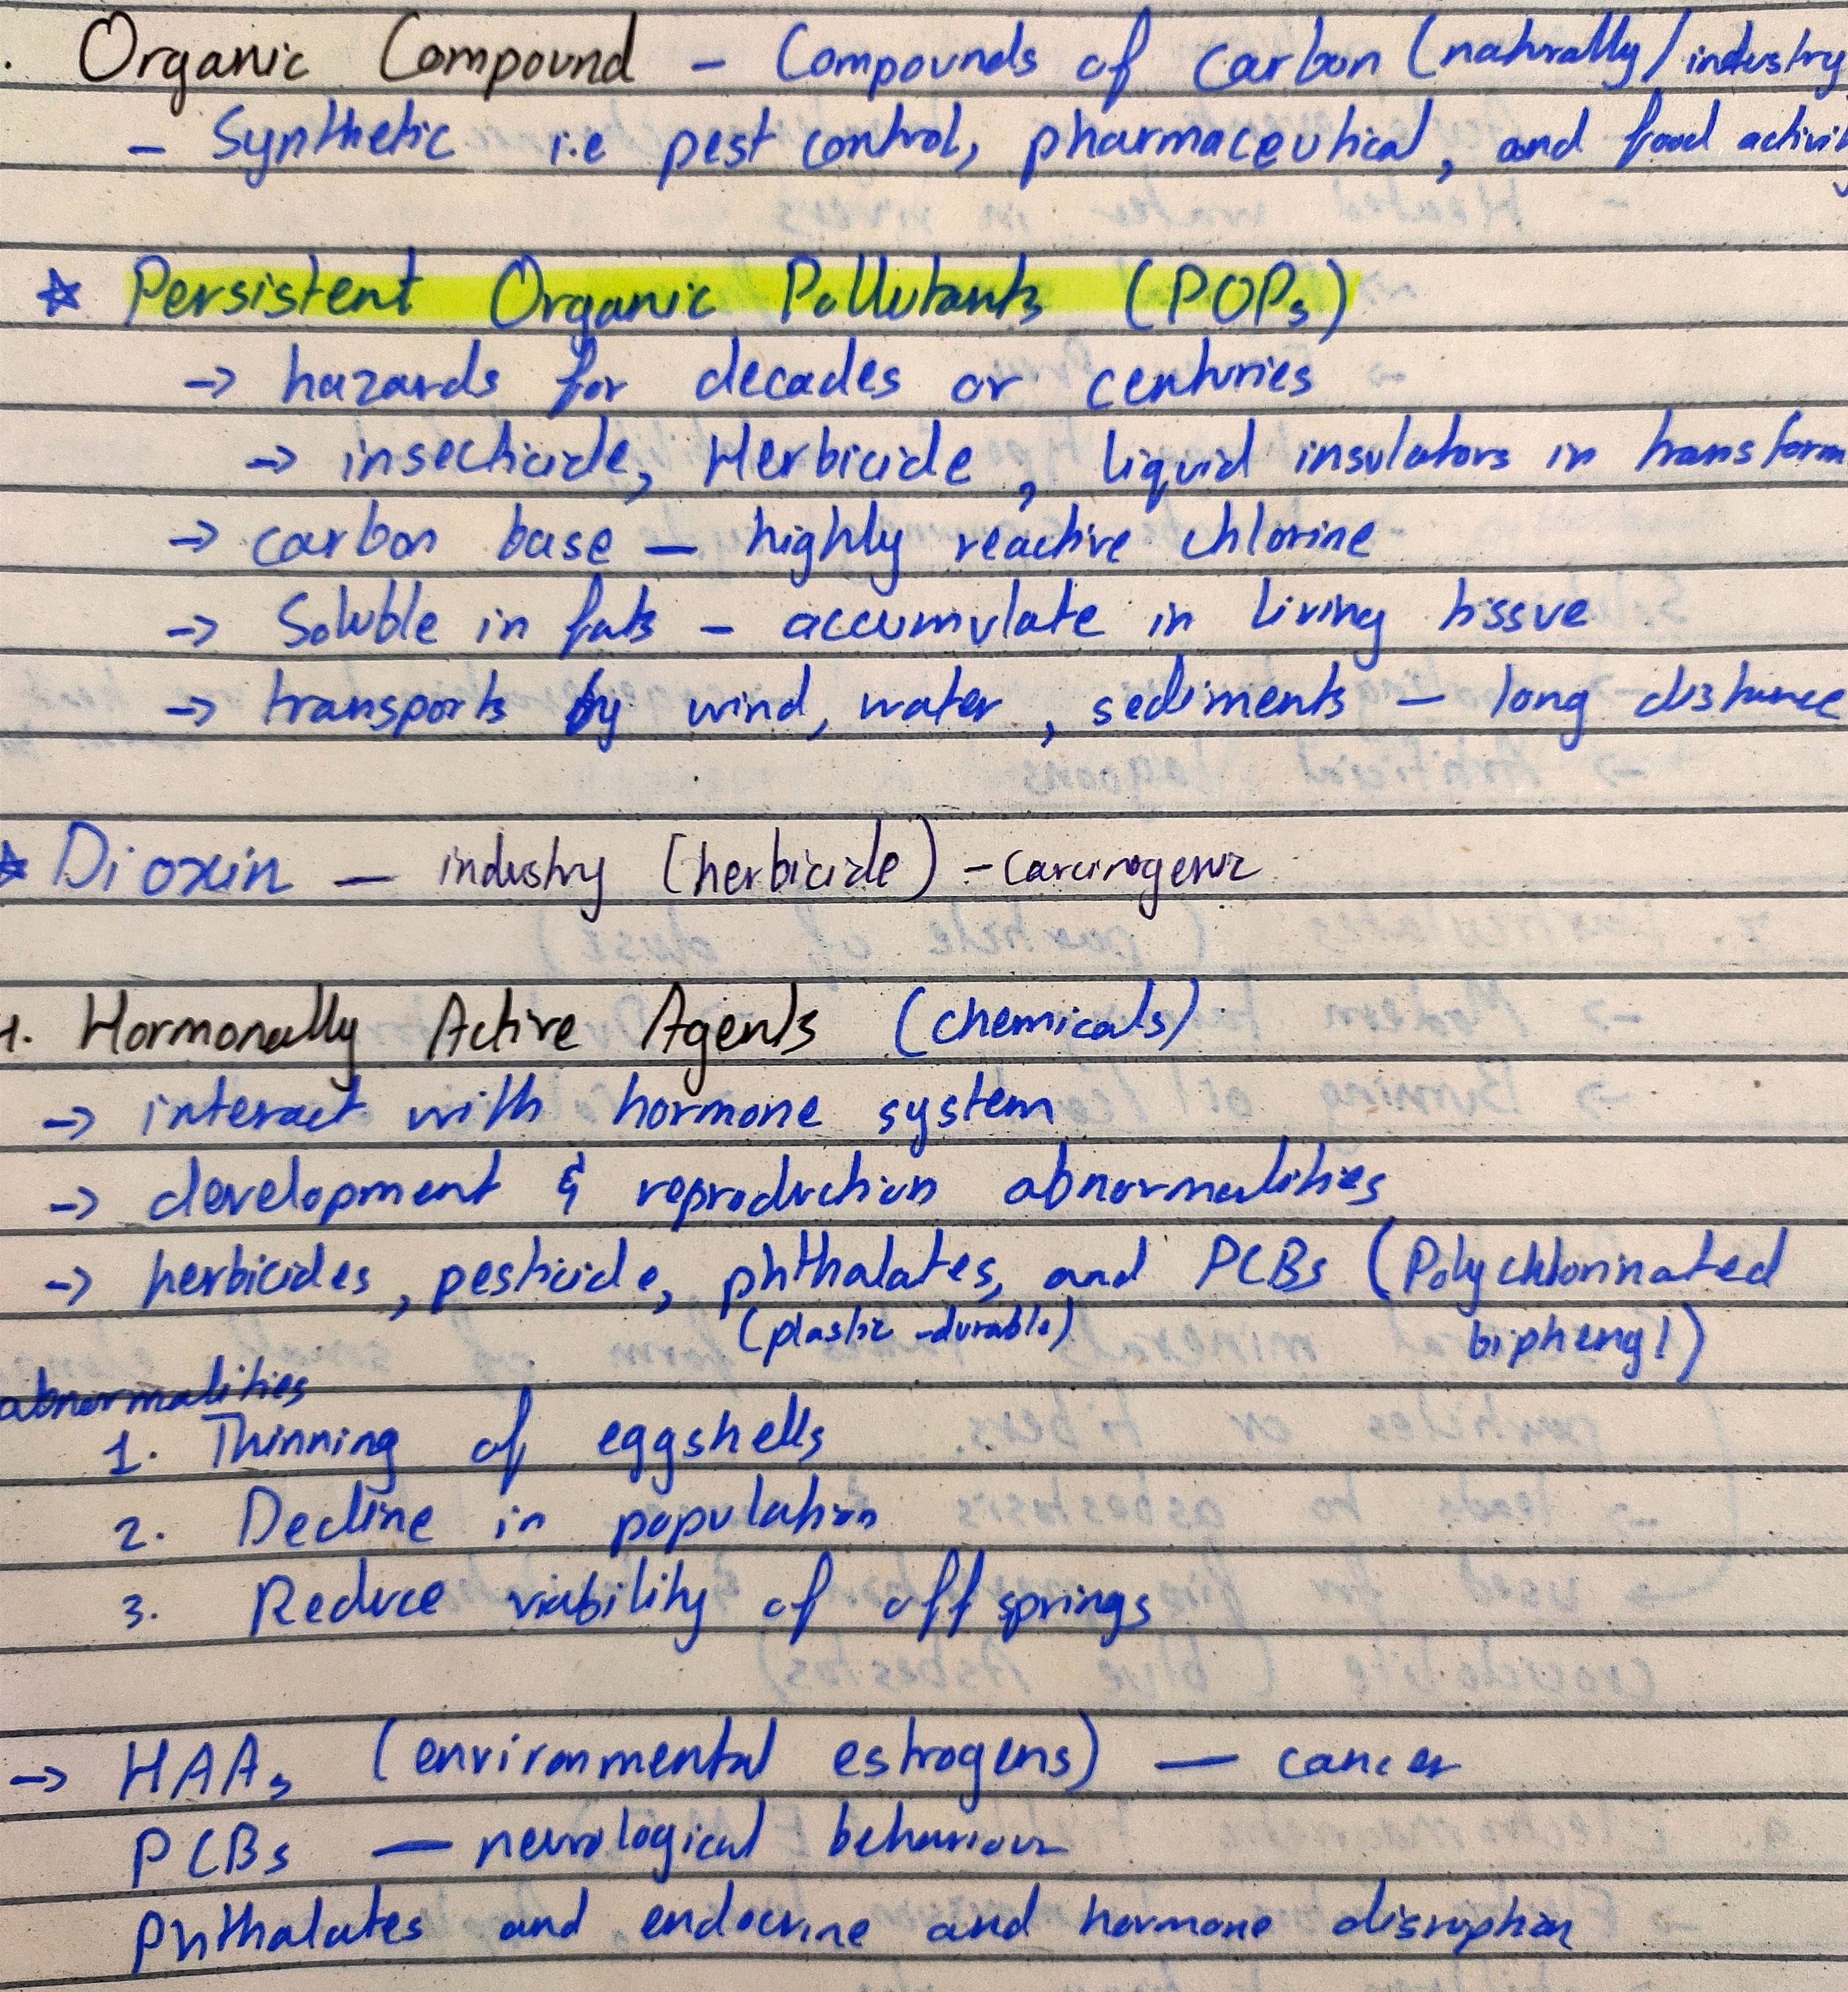 . Organic Compound - Compounds of carbon (naturally/industry
- Synthetic i.e pest control, pharmaceutical, and food
* Persistent Organic Pollutants (POPs)
→ hazards for decades or centuries
→ insecticide, Herbicide, liquid insulators in transform
→ carbon base - highly reactive chlorine
→ Soluble in fats - accumulate in living tissue
→ transports by wind, water, sediments - long distance
* Dioxin - industry (herbicide) - carcinogenic
4. Hormonally Active Agents (chemicals)
→ interact with hormone system
→ development & reproduction abnormalities
→ herbicides, pesticide, phthalates, and PCBs (Polychlorinated
(plastic - durable) biphenyl)
abnormalities
1. Thinning of eggshells
2. Decline in population
3. Reduce viability of off springs
→ HAAs (environmental estrogens) - cancer
PCBs - neurological behaviour
Phthalates and endocrine and hormone disruption